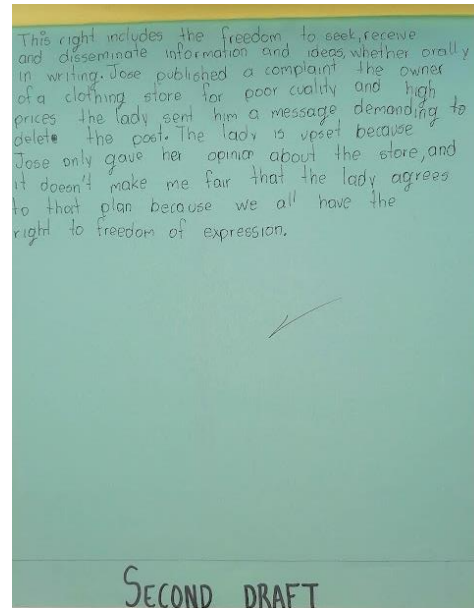 This right includes the freedom to seek, receive
and disseminate information and ideas, whether orally
in writing. Jose published a complaint the owner
of a clothing store for poor cuality and high
prices the lady sent him a message demanding to
delete the post. The lady is upset because
Jose only gave her opinion about the store, and
it doesn't make me fair that the lady agrees
to that plan because we all have the
right to freedom of expression.
SECOND DRAFT